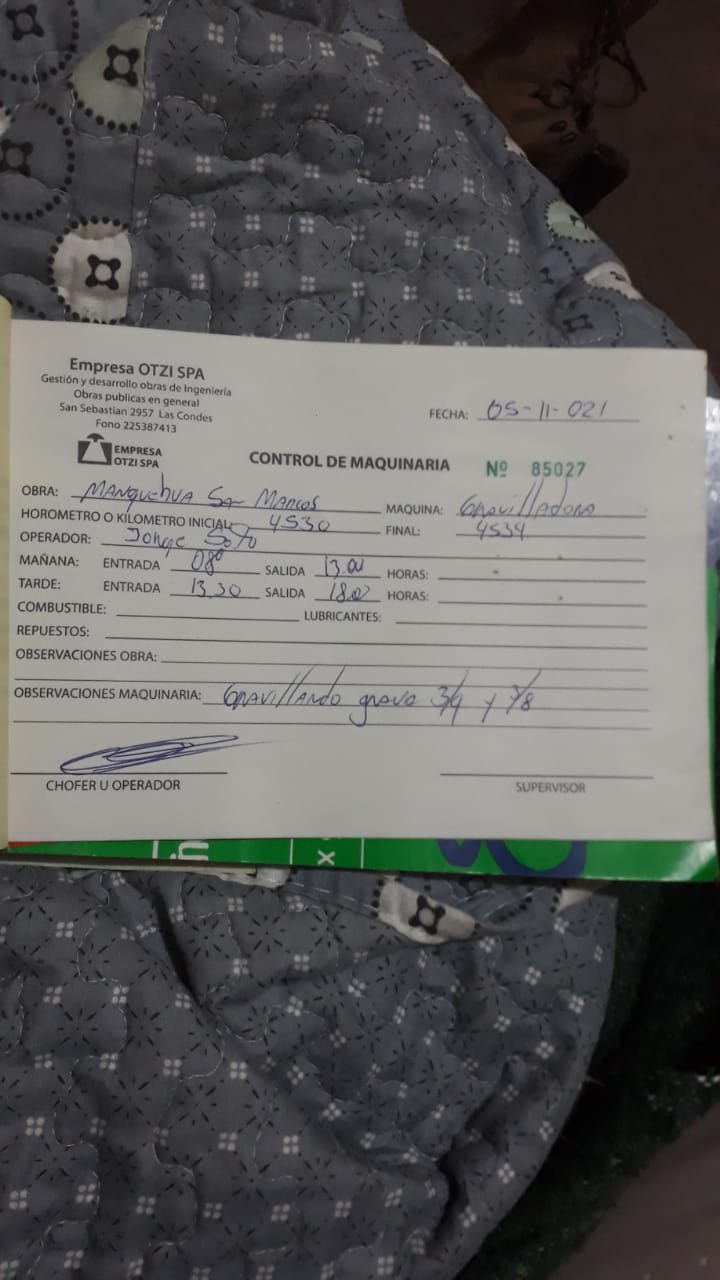 Empresa OTZI SPA
Gestión y desarrollo obras de Ingeniería
Obras publicas en general
San Sebastian 2957 Las Condes
Fono 225387413
FECHA: 05-11-021
EMPRESA
OTZI SPA
CONTROL DE MAQUINARIA Nº 85027
OBRA: Manquehua San Marcos MAQUINA: Gravilladora
HOROMETRO O KILOMETRO INICIAL 4530 FINAL: 4534
OPERADOR: Jorge Soto
MAÑANA: ENTRADA 08º SALIDA 13.00 HORAS:
TARDE: ENTRADA 13.30 SALIDA 18.00 HORAS:
COMBUSTIBLE: LUBRICANTES:
REPUESTOS:
OBSERVACIONES OBRA:
OBSERVACIONES MAQUINARIA: Gravillando grava 3/4 y 3/8
CHOFER U OPERADOR SUPERVISOR
x